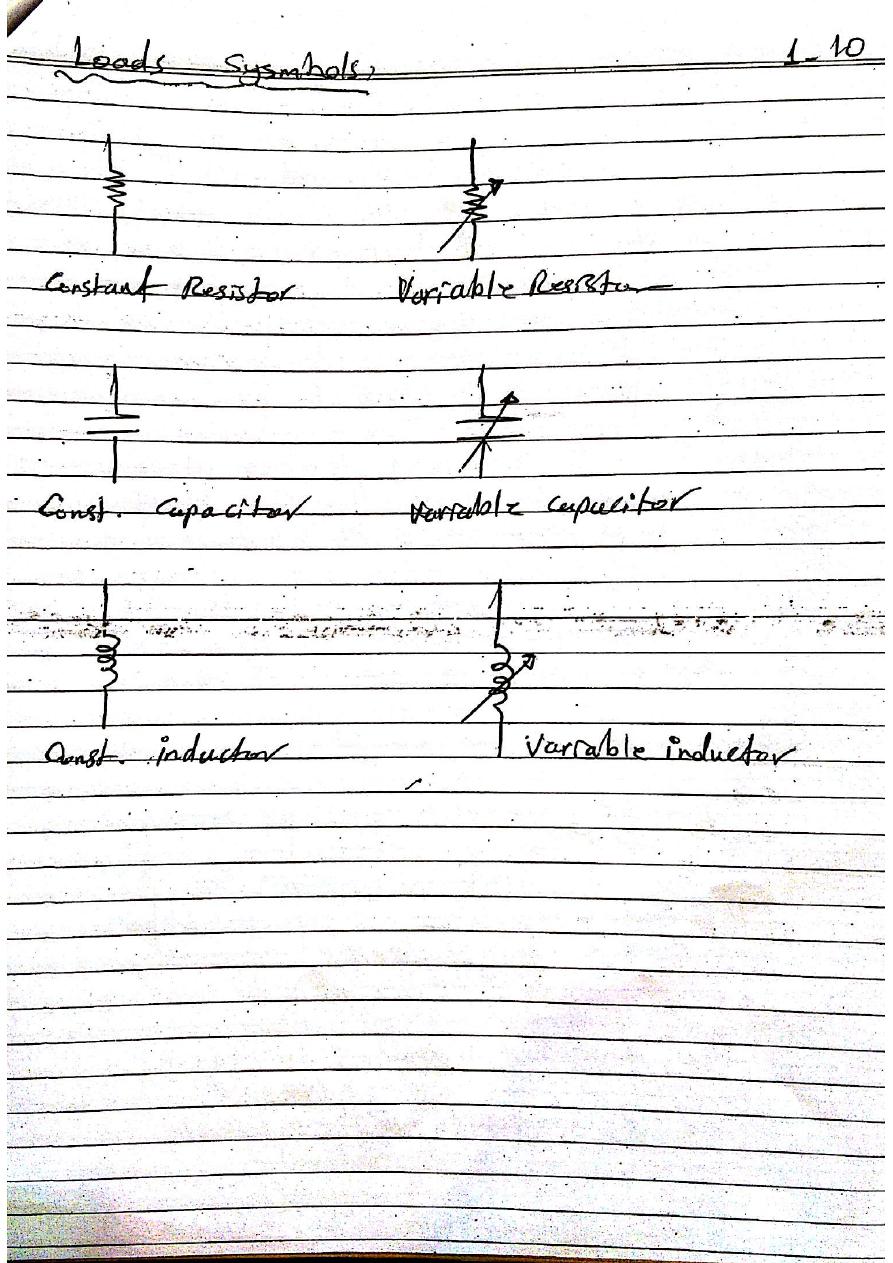 Loads Sysmbols,
1-10
Constant Resistor
Variable Resistor
Const. Capacitor
Variable Capacitor
Const. inductor
Variable inductor